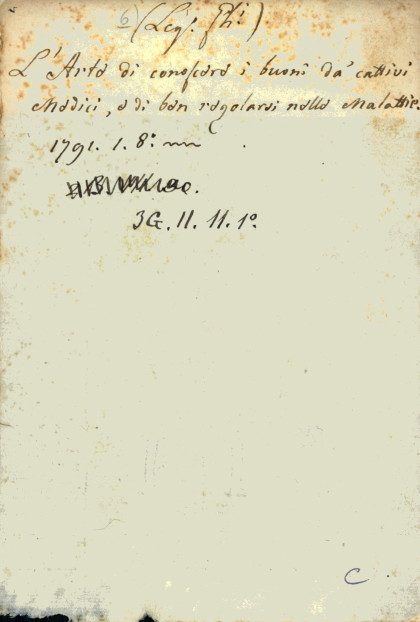 6)
L'Arte di conoscere i buoni da' cattivi
Medici, e di ben regolarsi nelle Malattie.
1791. 1. 8.º
3G. 11. 11. 1º.
C